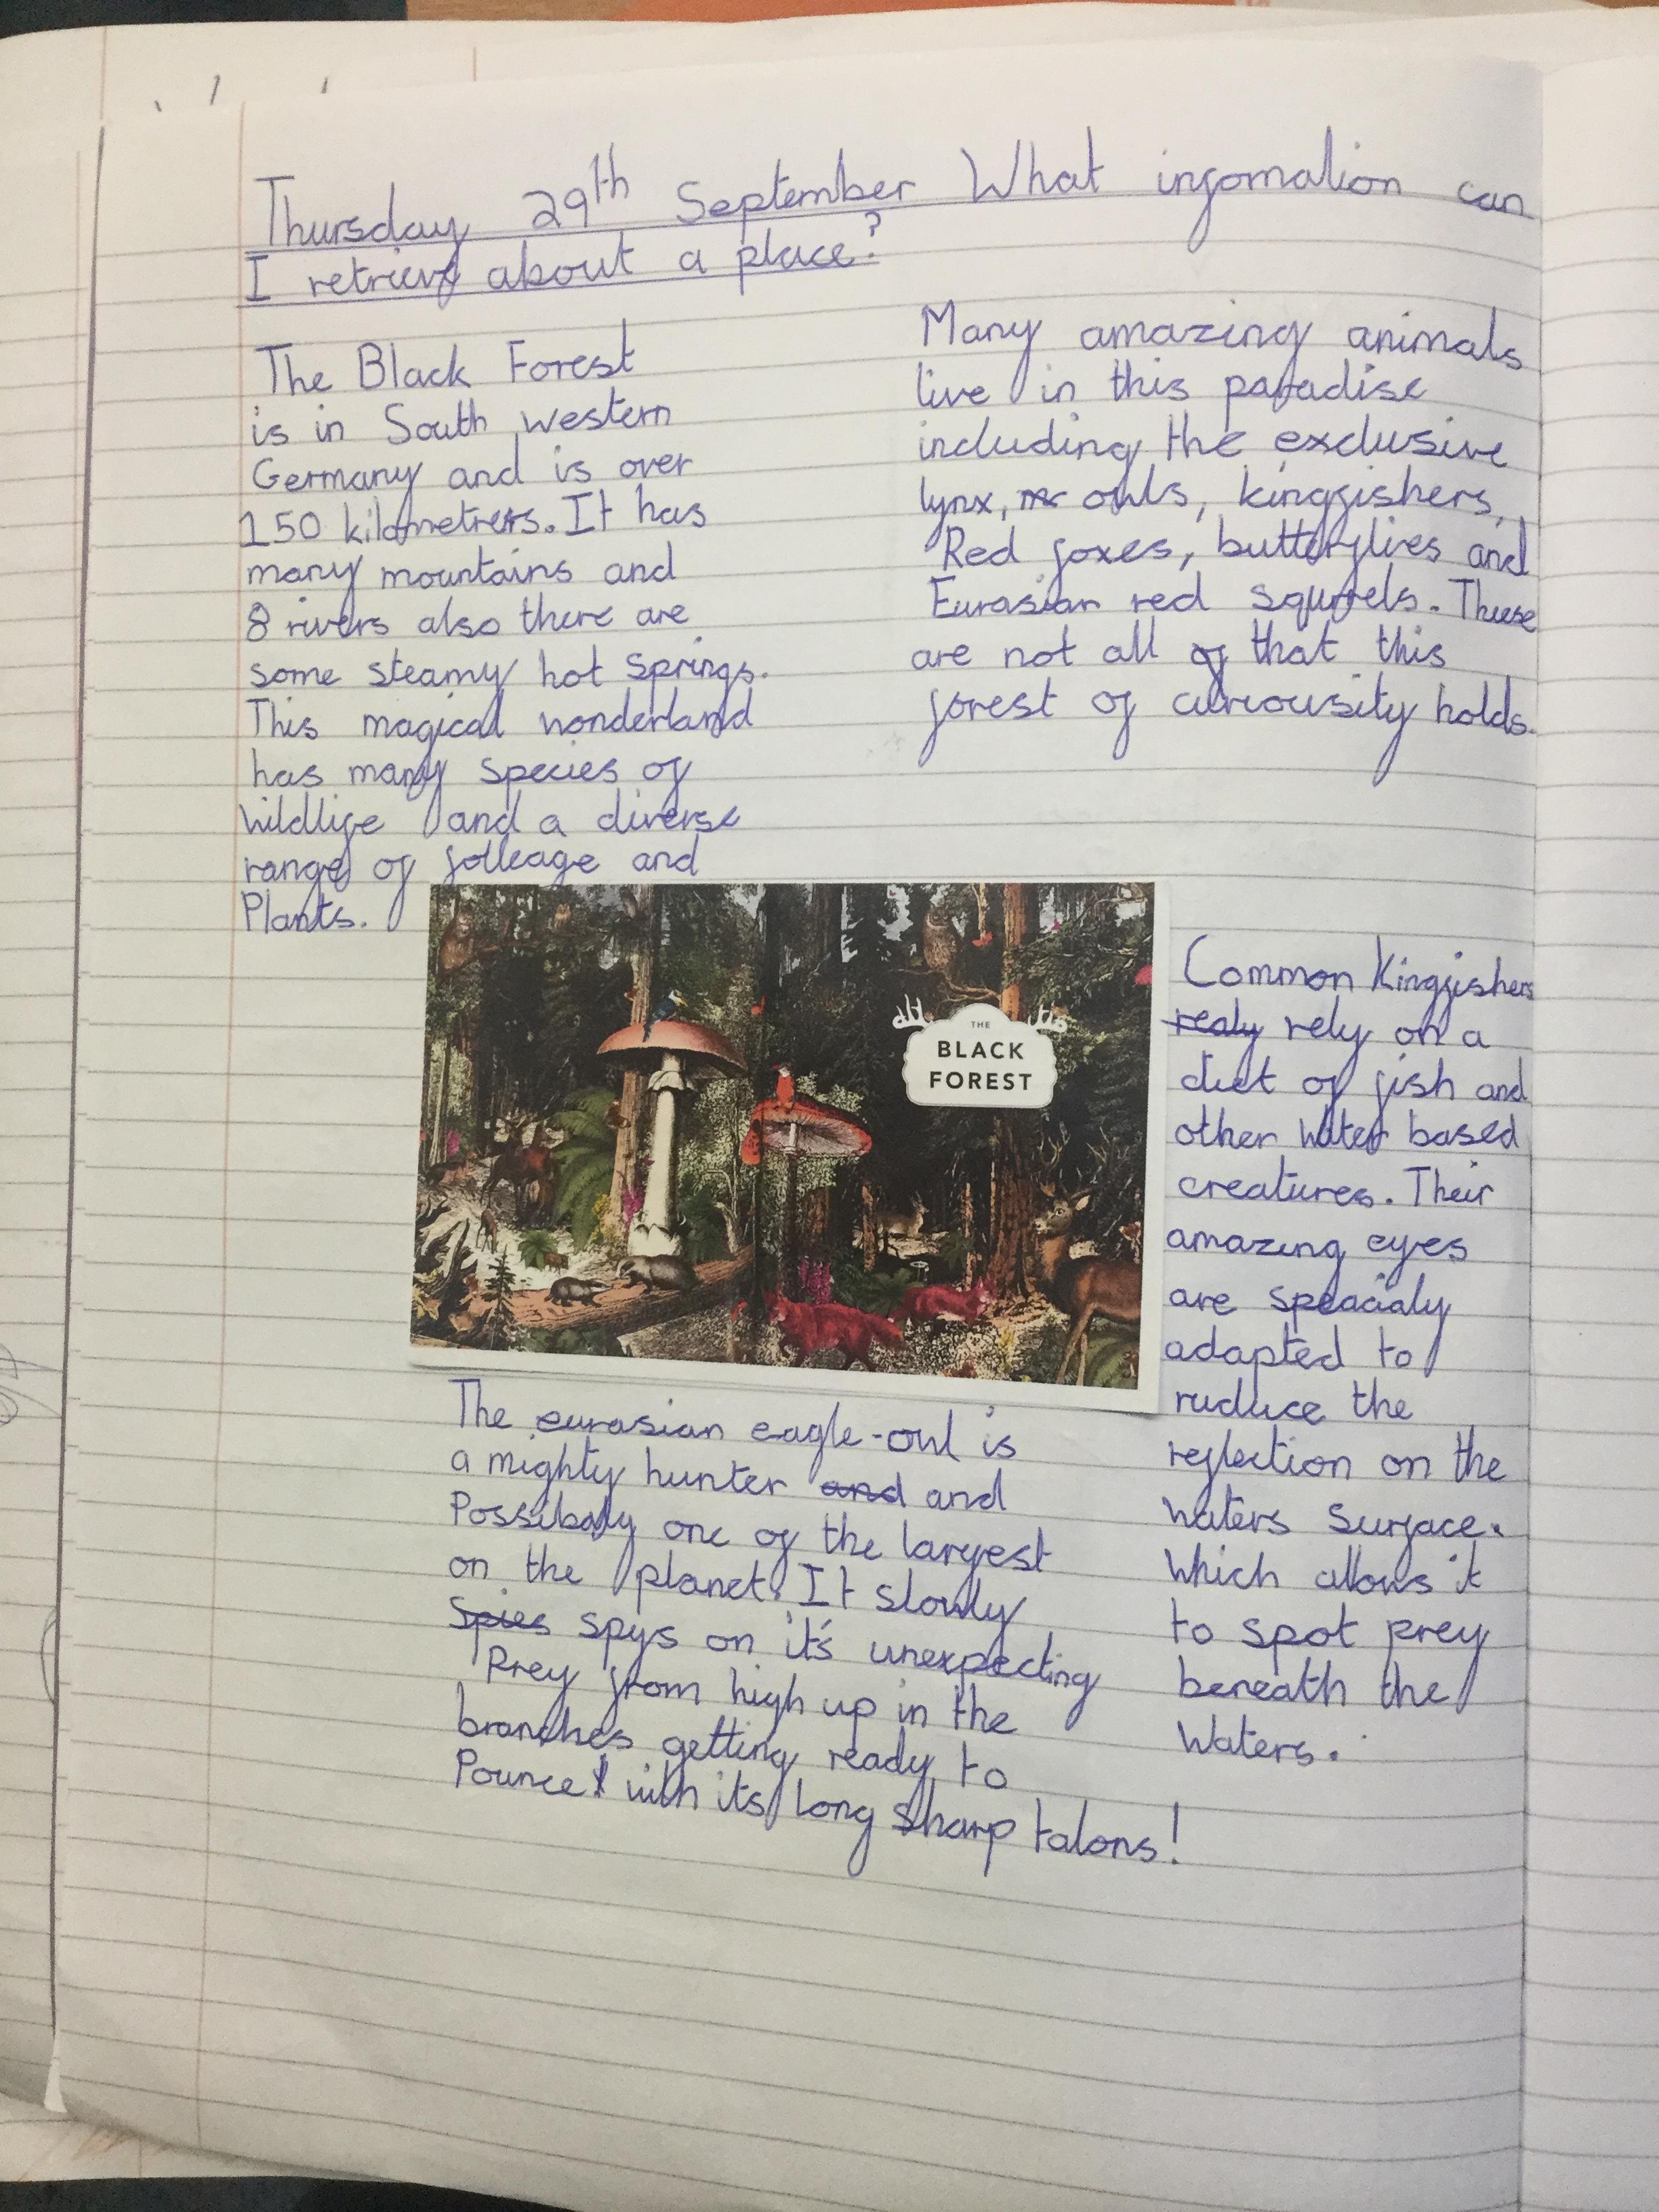 Thursday 29th September What infomation can
I retrieve about a place?
The Black Forest
is in South western
Germany and is over
150 kilometrers. It has
many mountains and
8 rivers also there are
some steamy hot springs.
This magical wonderland
has many species of
wildlife and a diverse
range of folleage and
Plants.
Many amazing animals
live in this paradise
including the exclusive
lynx, owls, kingfishers,
Red foxes, butterflives and
Eurasian red squrrels. These
are not all of that this
forest of curiousity holds.
THE
BLACK
FOREST
Common Kingfishers
realy rely on a
diet of fish and
other water based
creatures. Their
amazing eyes
are speacialy
adapted to
ruduce the
reflection on the
waters surface.
which allows it
to spot prey
beneath the
waters.
The eurasian eagle-owl is
a mighty hunter and and
Possibaly one of the largest
on the planet. It slowly
spies spys on it's unexpecting
Prey from high up in the
branches getting ready to
Pounce with its long sharp talons!